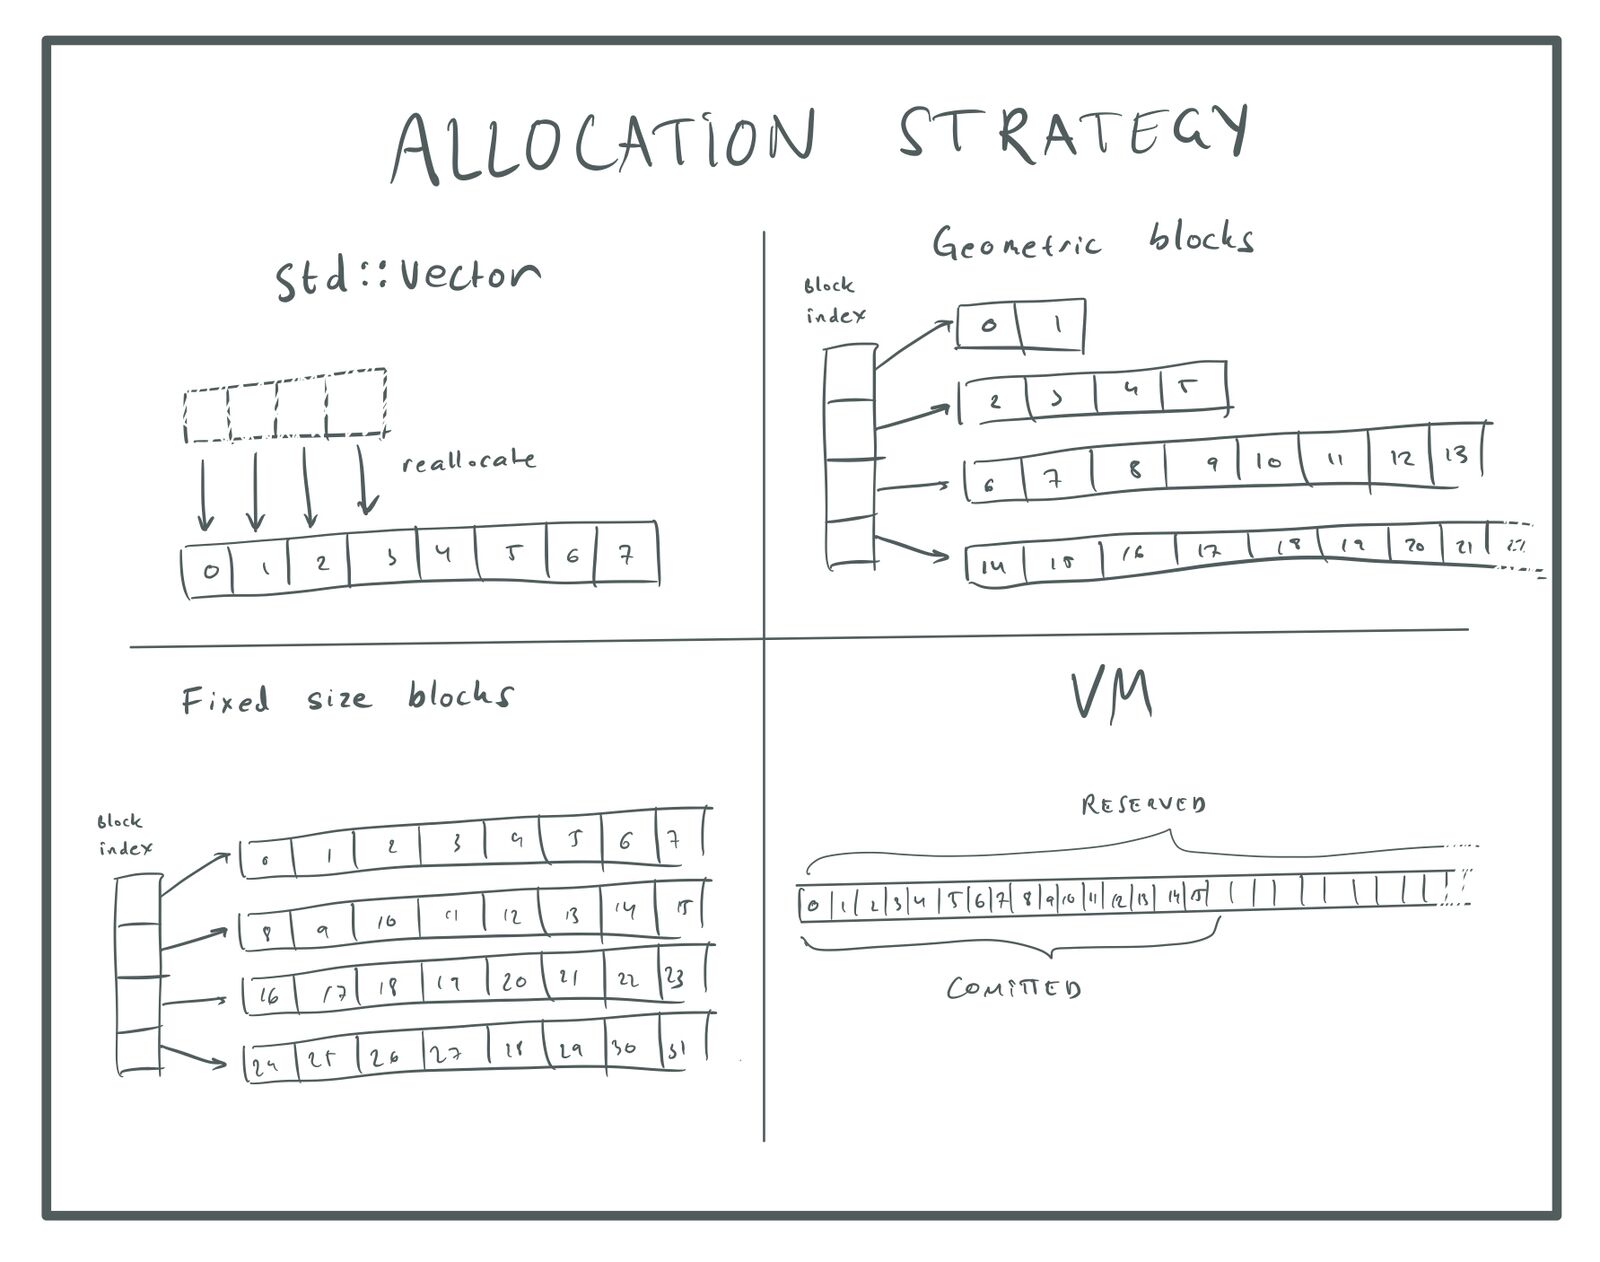 ALLOCATION STRATEGY
std::vector
reallocate
0 1 2 3 4 5 6 7
Geometric blocks
block
index
0 1
2 3 4 5
6 7 8 9 10 11 12 13
14 15 16 17 18 19 20 21
Fixed size blocks
block
index
0 1 2 3 4 5 6 7
8 9 10 11 12 13 14 15
16 17 18 19 20 21 22 23
24 25 26 27 28 29 30 31
VM
RESERVED
0 1 2 3 4 5 6 7 8 9 10 11 12 13 14 15
COMITTED